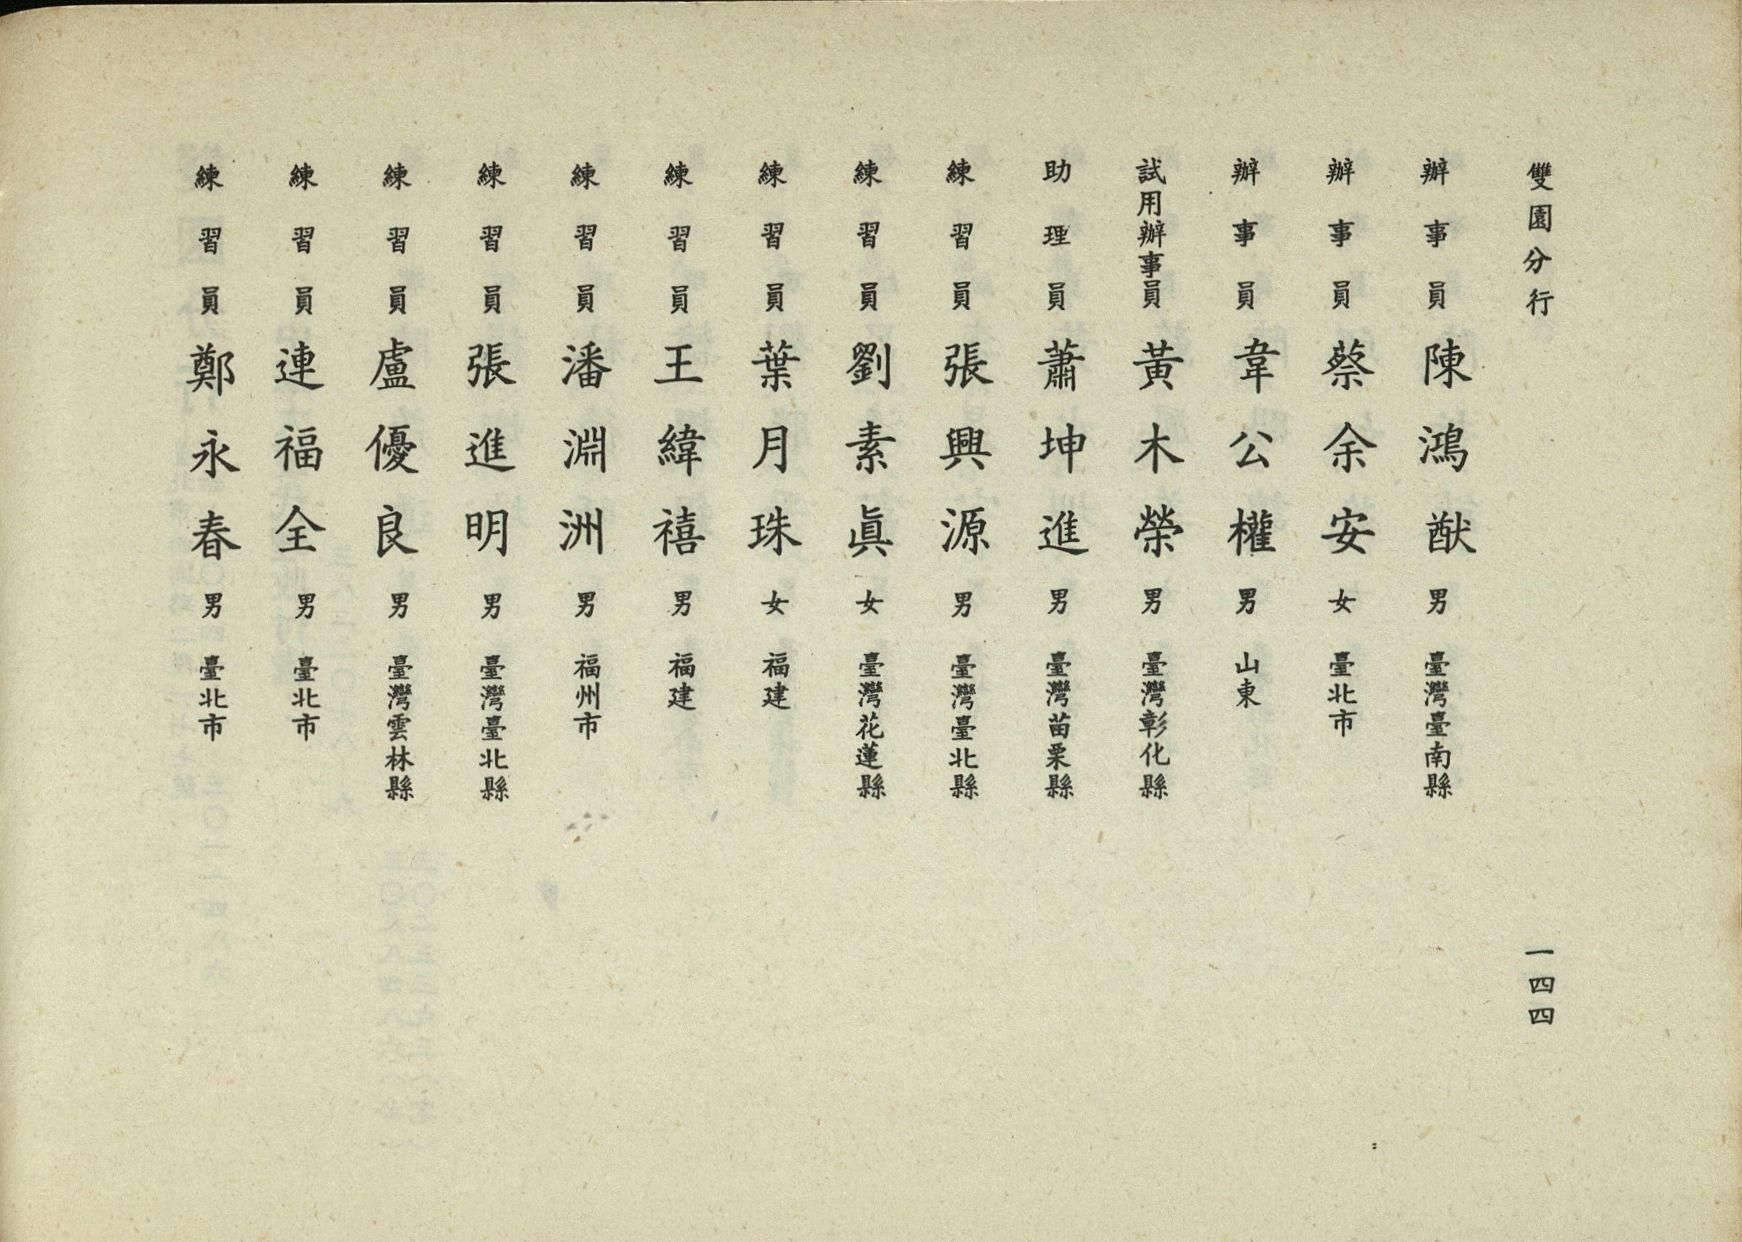 雙園分行 一四四
辦事員 陳鴻猷 男 臺灣臺南縣
辦事員 蔡余安 女 臺北市
辦事員 韋公權 男 山東
試用辦事員 黃木榮 男 臺灣彰化縣
助理員 蕭坤進 男 臺灣苗栗縣
練習員 張興源 男 臺灣臺北縣
練習員 劉素眞 女 臺灣花蓮縣
練習員 葉月珠 女 福建
練習員 王緯禧 男 福建
練習員 潘淵洲 男 福州市
練習員 張進明 男 臺灣臺北縣
練習員 盧優良 男 臺灣雲林縣
練習員 連福全 男 臺北市
練習員 鄭永春 男 臺北市